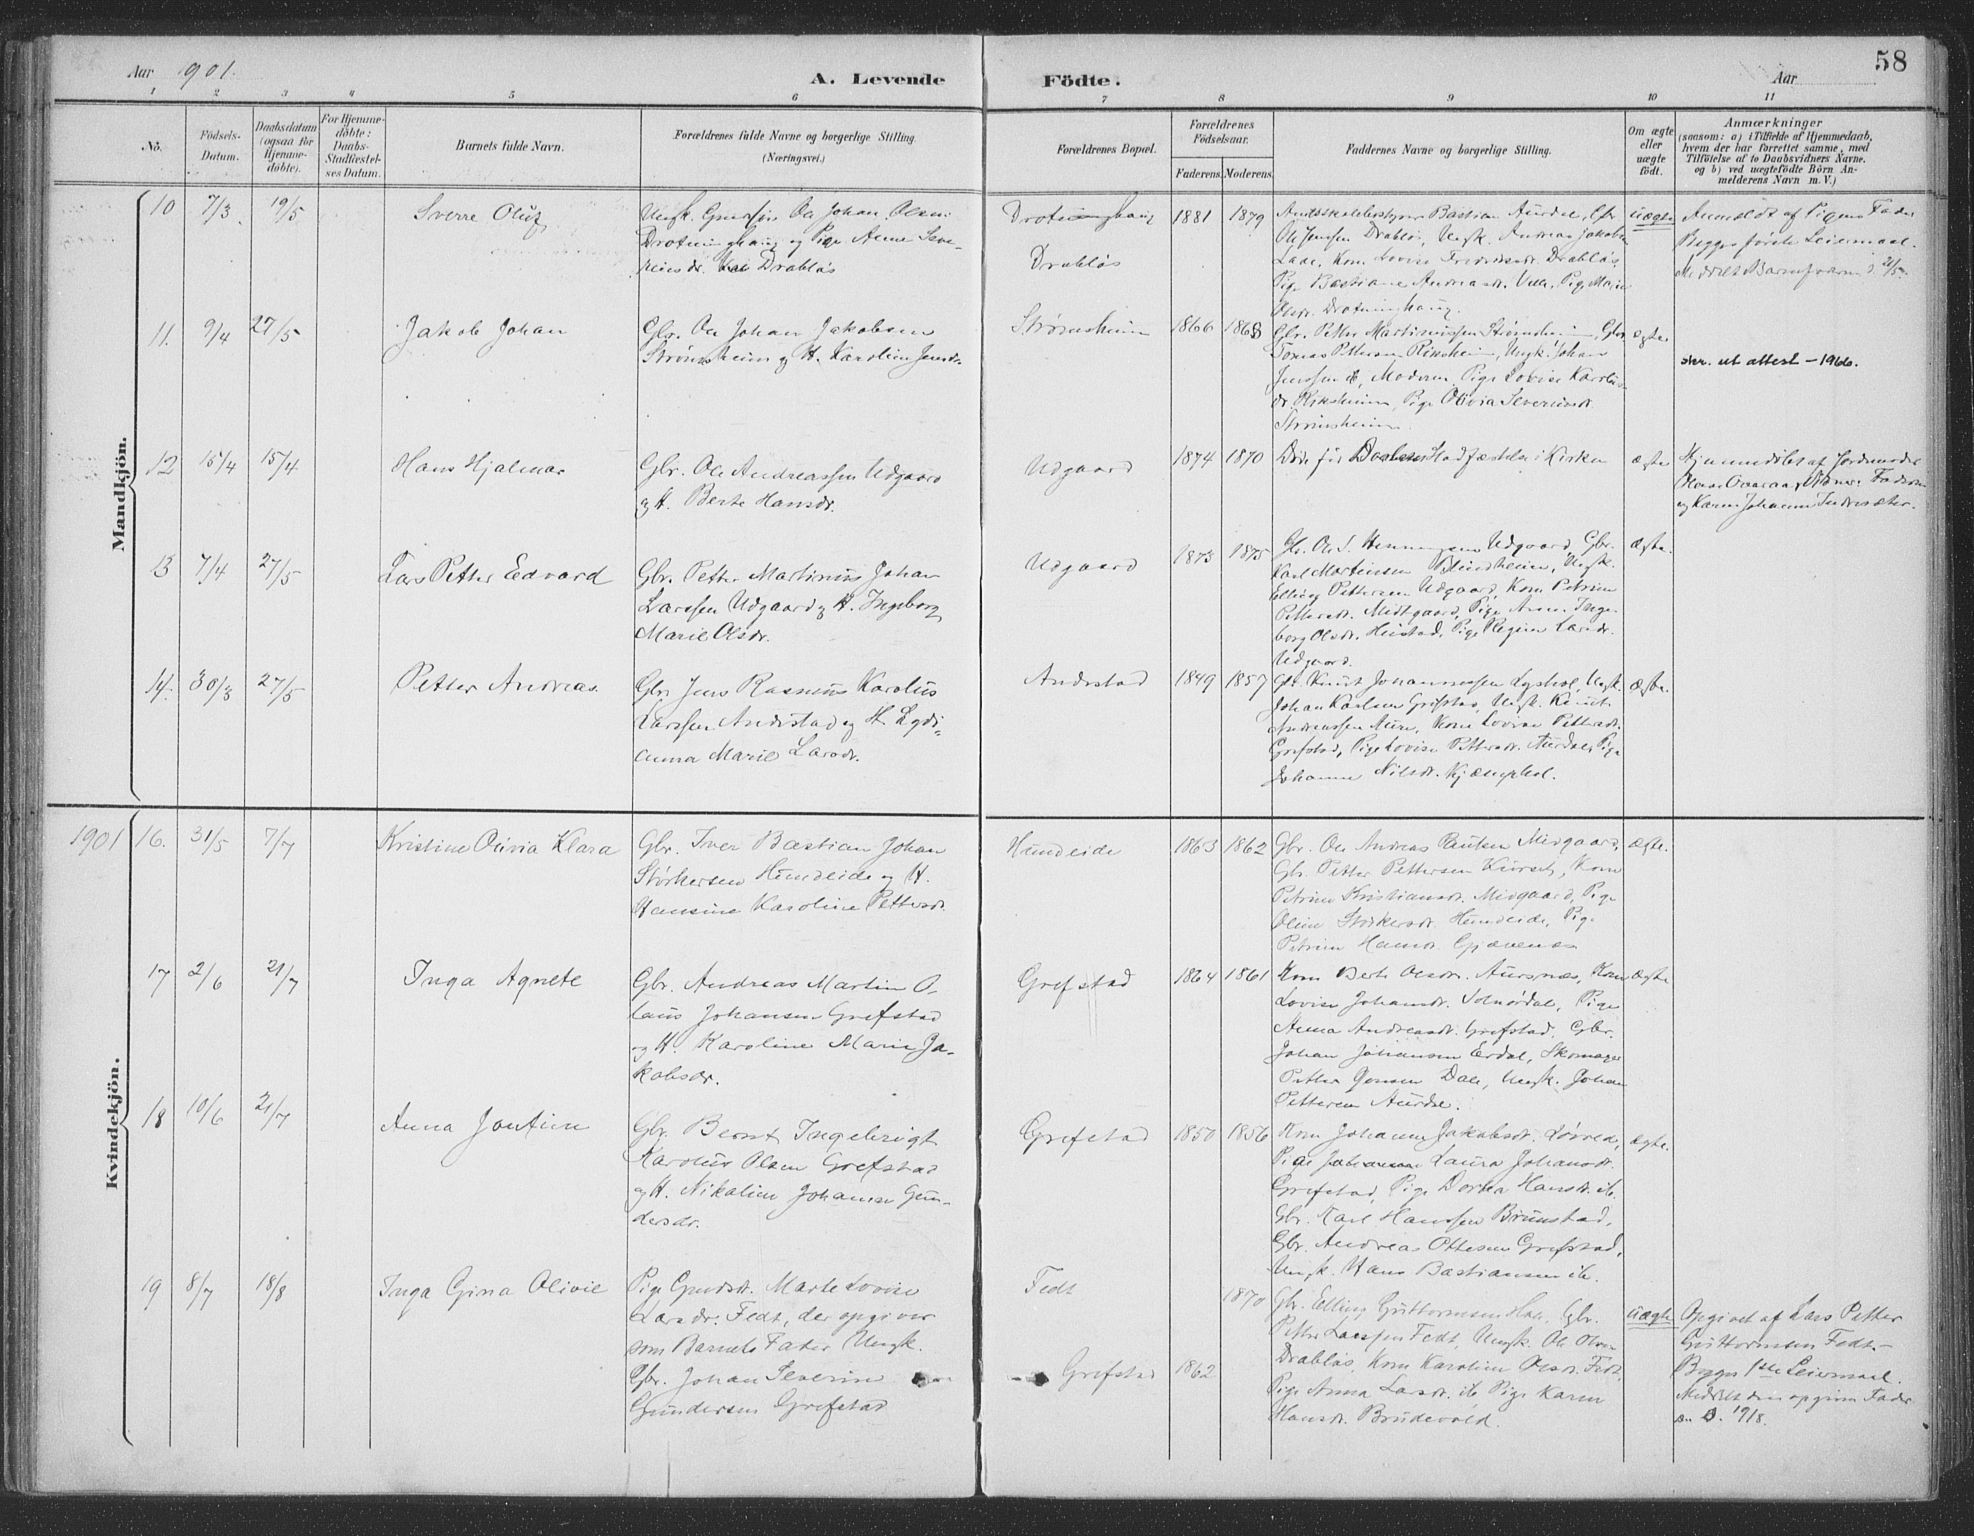 58
Aar 1901. A. Levende Födte. Aar
1 2 3 4 5 6 7 8 9 10 11
No.
Födsels-Datum.
Daabsdatum (ogsaa for Hjemmedöbte).
For Hjemmedöbte: Daabs-Stadfæstelses Datum.
Barnets fulde Navn.
Forældrenes fulde Navne og borgerlige Stilling. (Næringsvei.)
Forældrenes Bopæl.
Forældrenes Födselsaar.
Faderens. Moderens.
Faddernes Navne og borgerlige Stilling.
Om ægte eller uægte födt.
Anmærkninger
(saasom: a) i Tilfælde af Hjemmedaab,
hvem der har forrettet samme, med
Tilföielse af to Daabsvidners Navne.
og b) ved uægtefödte Börn An-
melderens Navn m. V.)
Mandkjön.
10 7/3 19/5 Sverre Oluf
Ungk. Ole Johan Olsen
Drotninghaug og Pige Anne Seve-
rinsdr. Drabløs
Drotninghaug
Drabløs
1881 1879
Bastian Aurdal, Gbr.
Ole Jensen Drabløs, Ungk. Andreas Jakobs.
Kom Lovise Drabløs,
Pige Bastiane Andreasdr. Pige Marie
Olsdr. Drotninghaug.
uægte
Anmeldt af Pigens Fader
Begges første Leiermaal.
11. 9/4 27/5 Jakob Johan
Gbr. Ole Johan Jakobsen
Strømsheim og H. Karoline Jensdr.
Strømsheim
1866 1868
Gbr. Petter Martinussen Strømsheim, Gbr.
Tomas Pettersen Riksheim, Ungk. Johan
Jenssen ib, Moderen, Pige Lovise Karolus-
dr. Riksheim, Pige Olivia Severinsdr.
Strømsheim
ægte
skr. ut attest – 1966.
12 15/4 15/4 Hans Hjalmar
Gbr. Ole Andreassen Udgaard
og H. Berte Hansdr.
Udgaard
1874 1870
Døde før Daabens Stadfæstelse i Kirken
ægte
Hjemmedøbt af Jordmoder
og Karen Johanne
13 7/4 27/5 Lars Petter Edvard
Gbr. Petter Martinus Johan
Larssen Udgaard og H. Ingeborg
Marie Olsdr.
Udgaard
1873 1875
Gbr. Ole S. Henningsen Udgaard, Gbr.
Karl Martinsen Blindheim, Ungk.
Elling Pettersen Udgaard, Kom Petrine
Pettersdr. Midtgaard, Pige Anne Inge-
borg Olsdr. Heistad, Pige Regine Larsdr.
Udgaard.
ægte.
14. 30/3 27/5 Petter Andreas
Gbr. Jens Rasmus Karolus
Larssen Andestad og H. Lydi-
anna Marie Larsdr.
Andestad
1849 1857
Gbr. Knut Johannessen Lyshol, Ungk.
Johan Karlsen Grefstad, Ungk. Knut
Andreassen Aure, Kom Lovise Pettersdr.
Grefstad, Pige Lovise Pettersdr. Aurdal, Pige
Johanne Nilsdr. Kjæmphol.
ægte.
Kvindekjön.
1901 16. 31/5 7/7 Kristine Olivia Klara
Gbr. Iver Bastian Johan
Størkersen Hundeide og H.
Hansine Karoline Pettersdr.
Hundeide
1863 1862
Gbr. Ole Andreas Paulsen Midgaard,
Gbr. Petter Pettersen Kurset, Kom
Petrine Kristiansdr. Midgaard, Pige
Oline Størkersdr. Hundeide, Pige
Petrine Hansdr. Gjævenes
ægte.
17 2/6 21/7 Inga Agnete
Gbr. Andreas Martin O-
laus Johansen Grefstad
og H. Karoline Marie Ja-
kobsdr.
Grefstad
1864 1861
Kom Berte Olsdr. Aursnes, Kom
Lovise Johansdr. Solnørdal, Pige
Anna Andreasdr. Grefstad, Gbr.
Johan Johansen Erdal, Skomager
Petter Jensen Dale, Ungk. Johan
Pettersen Aurdal.
ægte
18 10/6 21/7 Anna Jontine
Gbr. Bernt Ingebrigt
Karolus Olsen Grefstad
og H. Nikoline Johanne Gun-
dersdr.
Grefstad
1850 1856
Kom Johanne Jakobsdr. Løvold,
Pige Laura Johansdr.
Grefstad, Pige Dorthea Hansdr. ib.
Gbr. Karl Hanssen Brunstad,
Gbr. Andreas Ottesen Grefstad,
Ungk. Hans Bastiansen ib.
ægte.
19 8/7 18/8 Inga Gina Olivie
Pige Gaardsdr. Marte Lovise
Larsdr. Fedt, der opgiver
som Barnets Fader Ungk.
Gbr. Johan Severin
Gundersen Grefstad
Fedt
Grefstad
1862 1870
Gbr. Elling Guttormsen Hole, Gbr.
Petter Larssen Fedt, Ungk. Ole Olsen
Drabløs, Kom Karoline Olsdr. Fedt,
Pige Anna Larsdr. ib Pige Karen
Hansdr. Brudevold.
uægte
Opgivet af Lars Petter
Guttormsen Fedt.
Begges 1ste Leiermaal.
Meddelt den opgivne Fader
1918.